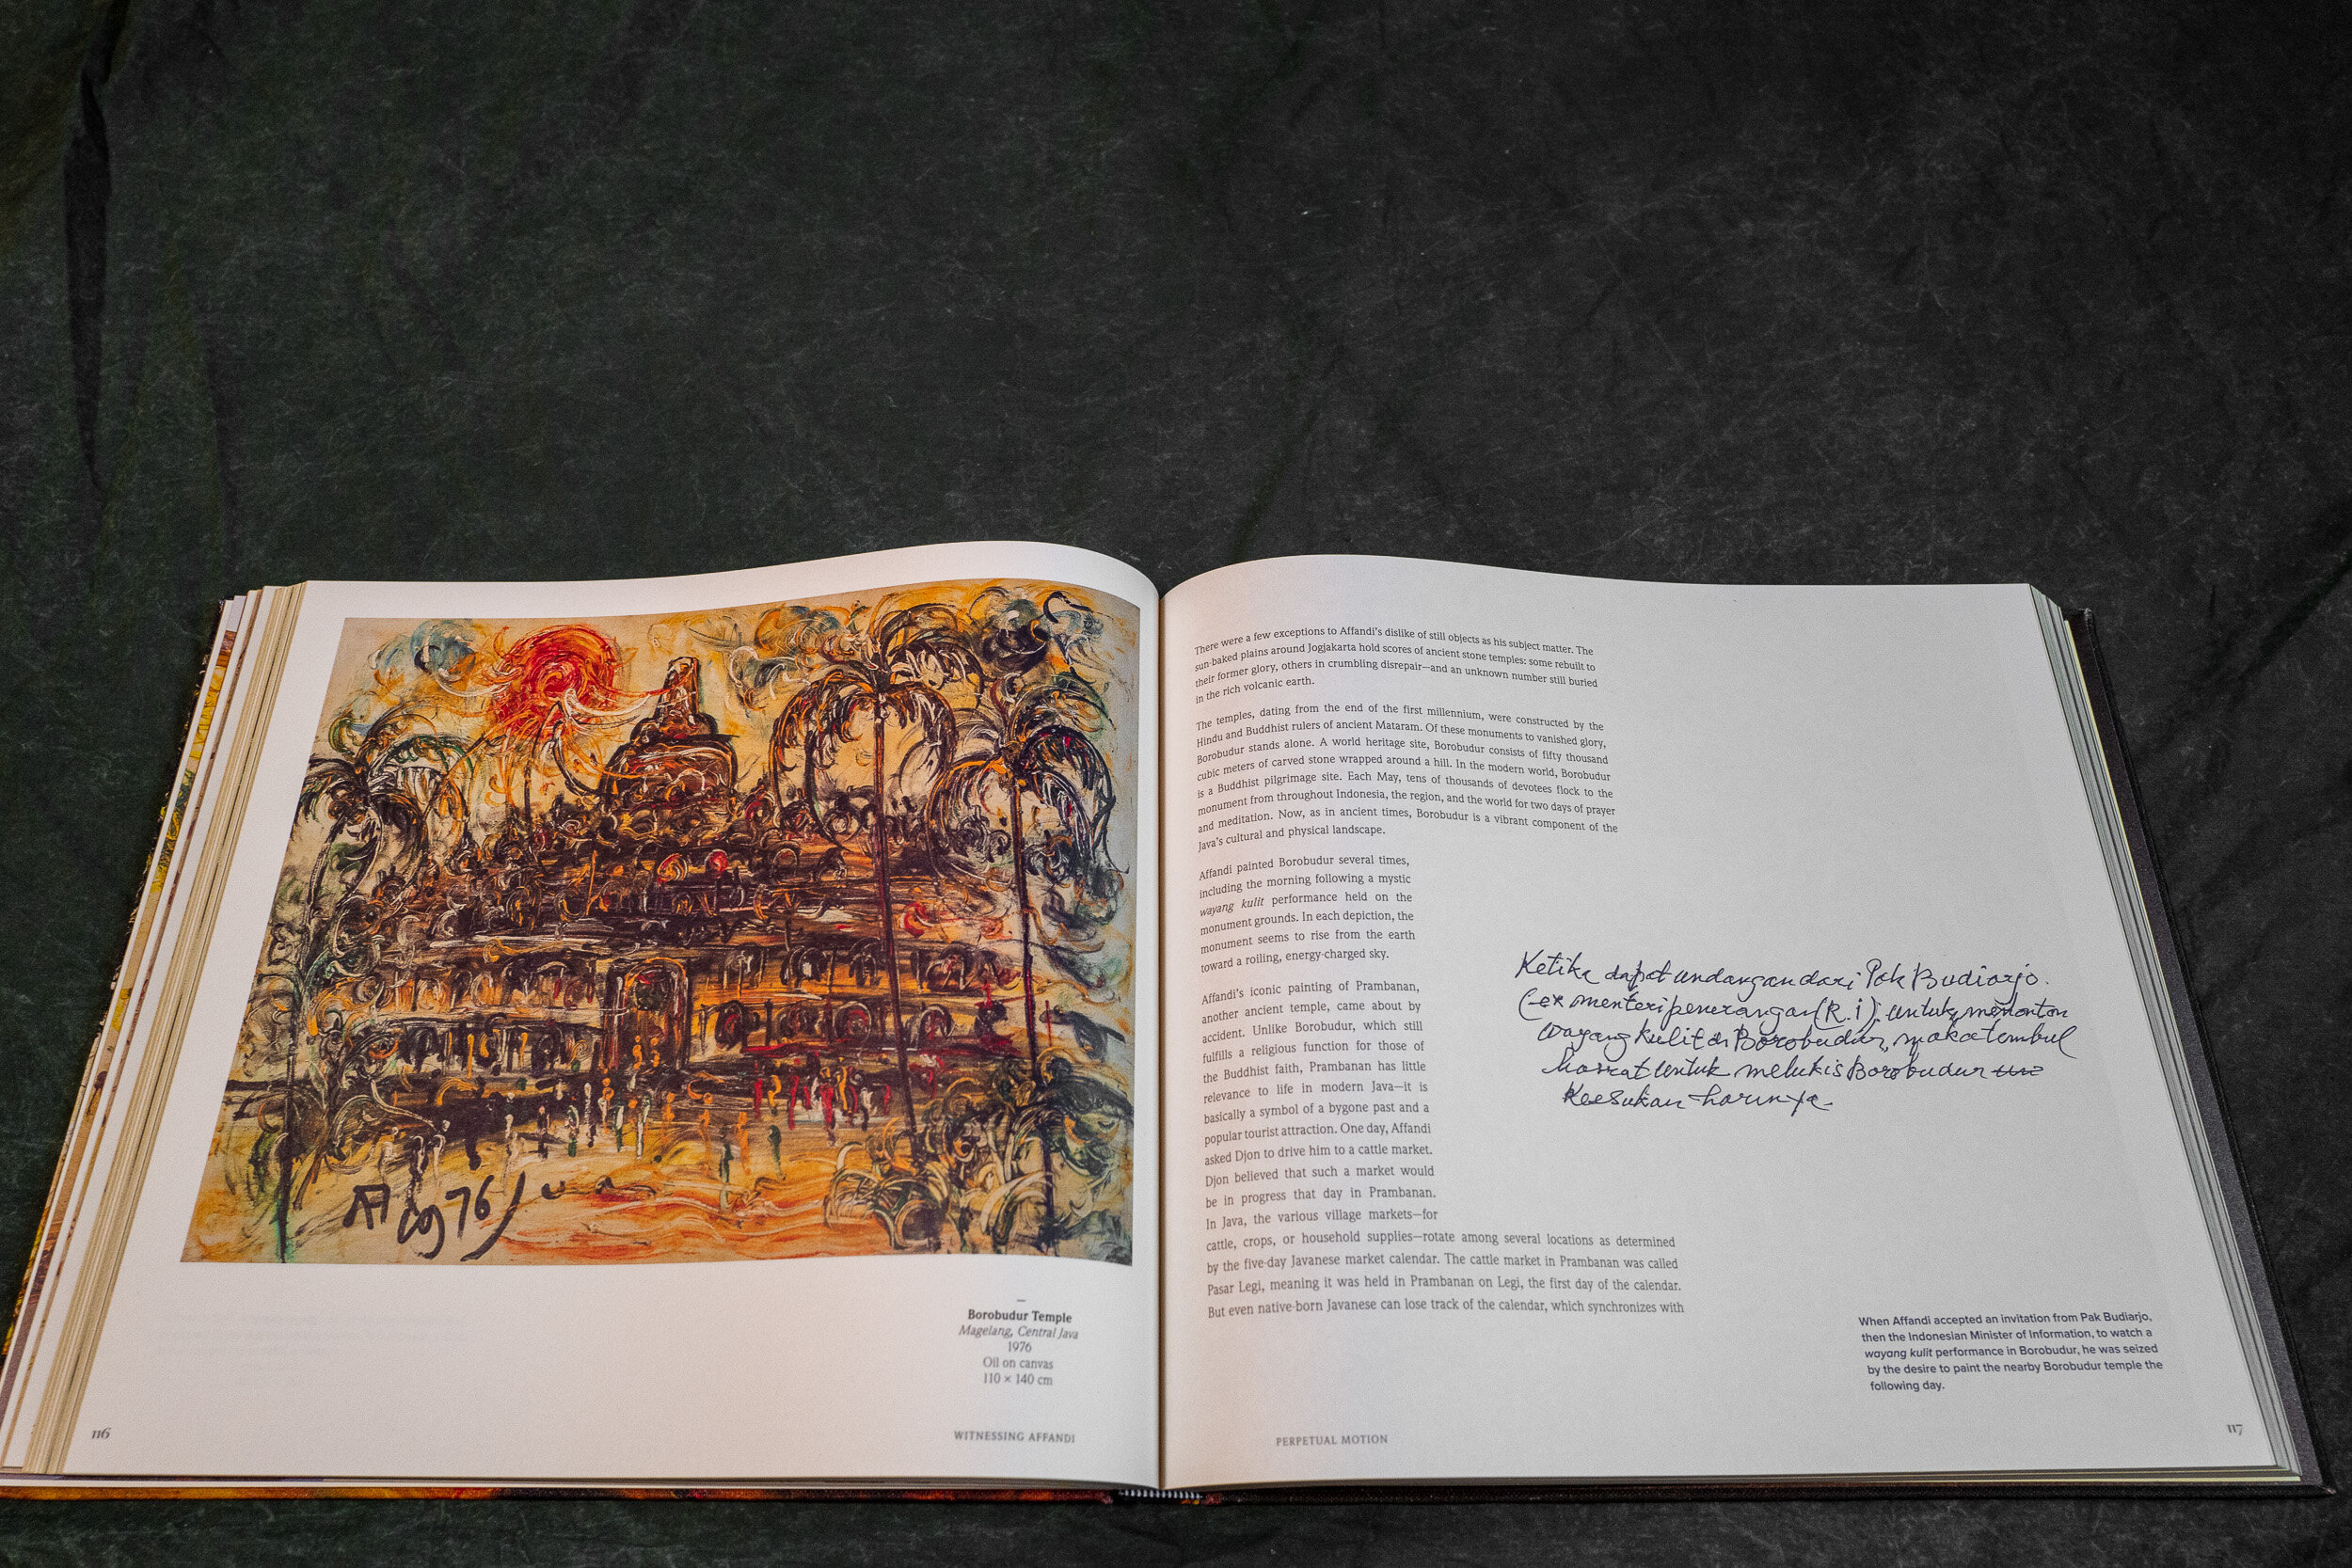 76
Borobudur Temple
Magelang, Central Java
1976
Oil on canvas
110 × 140 cm
116
WITNESSING AFFANDI
There were a few exceptions to Affandi's dislike of still objects as his subject matter. The
sun-baked plains around Jogjakarta hold scores of ancient stone temples: some rebuilt to
their former glory, others in crumbling disrepair—and an unknown number still buried
in the rich volcanic earth.
The temples, dating from the end of the first millennium, were constructed by the
Hindu and Buddhist rulers of ancient Mataram. Of these monuments to vanished glory,
Borobudur stands alone. A world heritage site, Borobudur consists of fifty thousand
cubic meters of carved stone wrapped around a hill. In the modern world, Borobudur
is a Buddhist pilgrimage site. Each May, tens of thousands of devotees flock to the
monument from throughout Indonesia, the region, and the world for two days of prayer
and meditation. Now, as in ancient times, Borobudur is a vibrant component of the
Java's cultural and physical landscape.
Affandi painted Borobudur several times,
including the morning following a mystic
wayang kulit performance held on the
monument grounds. In each depiction, the
monument seems to rise from the earth
toward a roiling, energy-charged sky.
Affandi's iconic painting of Prambanan,
another ancient temple, came about by
accident. Unlike Borobudur, which still
fulfills a religious function for those of
the Buddhist faith, Prambanan has little
relevance to life in modern Java—it is
basically a symbol of a bygone past and a
popular tourist attraction. One day, Affandi
asked Djon to drive him to a cattle market.
Djon believed that such a market would
be in progress that day in Prambanan.
In Java, the various village markets—for
cattle, crops, or household supplies—rotate among several locations as determined
by the five-day Javanese market calendar. The cattle market in Prambanan was called
Pasar Legi, meaning it was held in Prambanan on Legi, the first day of the calendar.
But even native-born Javanese can lose track of the calendar, which synchronizes with
Ketika dapat undangan dari Pak Budiarjo.
(-ex menteri penerangan (R.I), untuk menonton
wayang kulit di Borobudur, maka tembul
hasrat untuk melukis Borobudur
Keesukan harinya.
When Affandi accepted an invitation from Pak Budiarjo,
then the Indonesian Minister of Information, to watch a
wayang kulit performance in Borobudur, he was seized
by the desire to paint the nearby Borobudur temple the
following day.
PERPETUAL MOTION
117